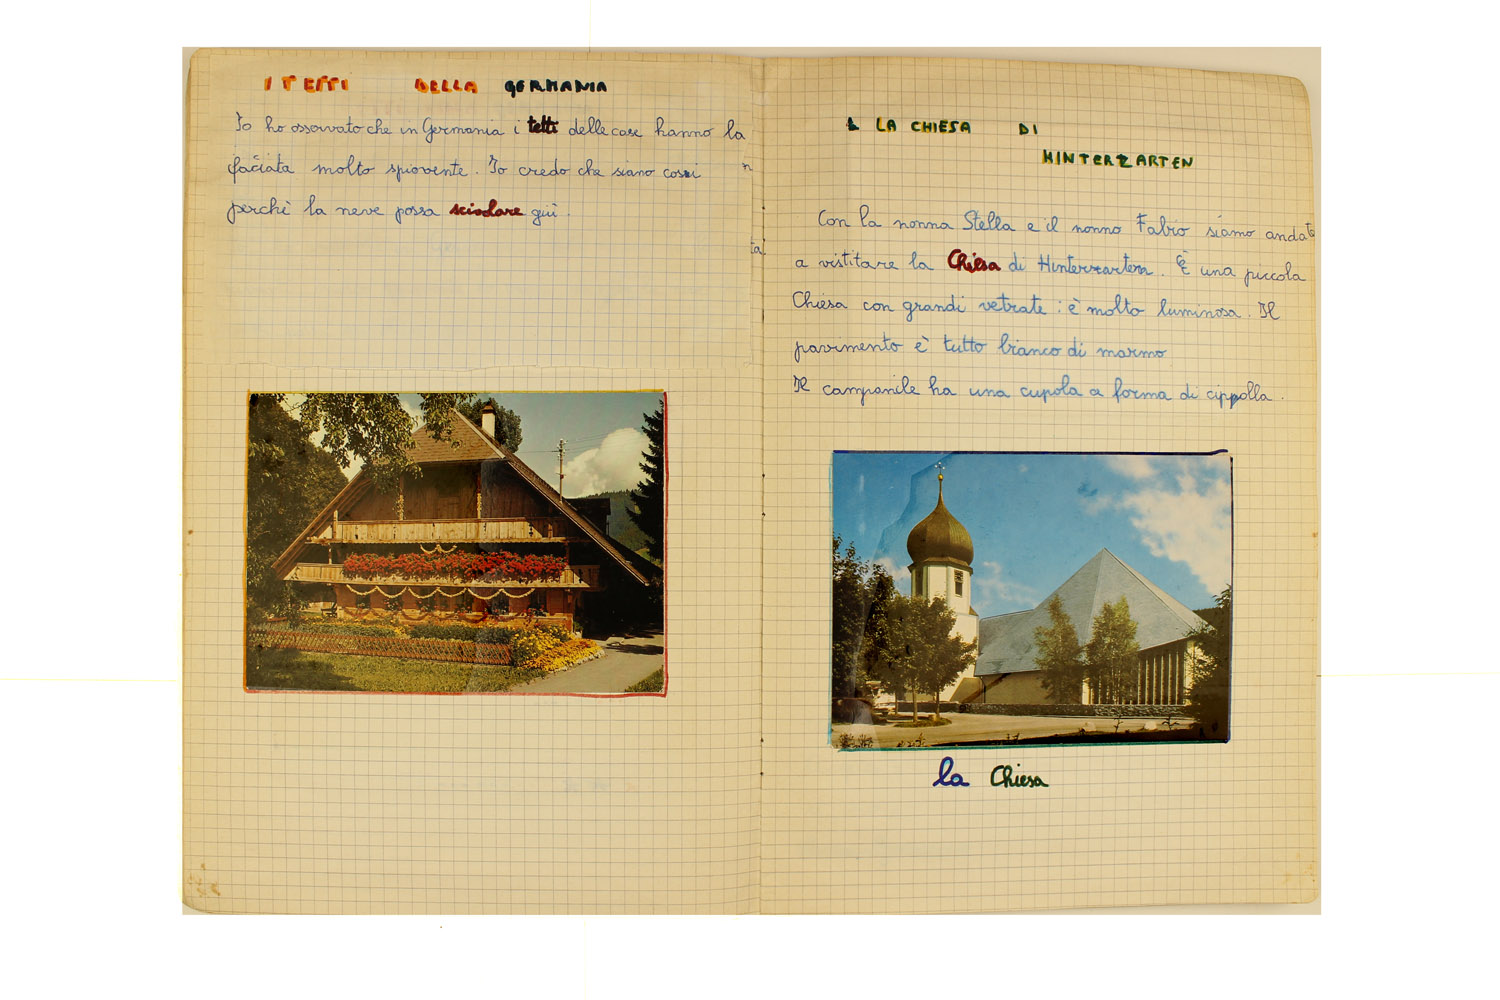 I TETTI DELLA GERMANIA
Io ho osservato che in Germania i tetti delle case hanno la
faciata molto spiovente. Io credo che siano cosi
perchè la neve possa sciolare giù.
LA CHIESA DI
HINTERZARTEN
Con la nonna Stella e il nonno Fabio siamo andati
a vistitare la Chiesa di Hinterzarten. È una piccola
Chiesa con grandi vetrate: è molto luminosa. Il
pavimento è tutto bianco di marmo
Il campanile ha una cupola a forma di cippolla.
la Chiesa